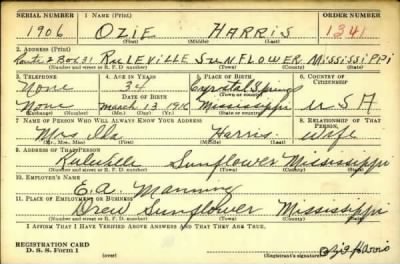 SERIAL NUMBER 1. NAME (Print) ORDER NUMBER
1906 OZIE HARRIS 1341
(First) (Middle) (Last)
2. ADDRESS (Print)
Route 2 Box 31 RULEVILLE SUNFLOWER MISSISSIPPI
(Number and street or R. F. D. number) (Town) (County) (State)
3. TELEPHONE 4. AGE IN YEARS 5. PLACE OF BIRTH 6. COUNTRY OF CITIZENSHIP
None 34 Crystal Springs
DATE OF BIRTH (Town or county)
None March 13 1916 Mississippi U S A
7. NAME OF PERSON WHO WILL ALWAYS KNOW YOUR ADDRESS 8. RELATIONSHIP OF THAT PERSON
Mrs Illa Harris wife
(Mr., Mrs., Miss) (First) (Middle) (Last)
9. ADDRESS OF THAT PERSON
Ruleville Sunflower Mississippi
(Number and street or R. F. D. number) (Town) (County) (State)
10. EMPLOYER'S NAME
E.A. Manning
11. PLACE OF EMPLOYMENT OR BUSINESS
Drew Sunflower Mississippi
(Number and street or R. F. D. number) (Town) (County) (State)
I AFFIRM THAT I HAVE VERIFIED ABOVE ANSWERS AND THAT THEY ARE TRUE.
REGISTRATION CARD
D. S. S. Form 1 (over) (Registrant's signature) Ozie Harris